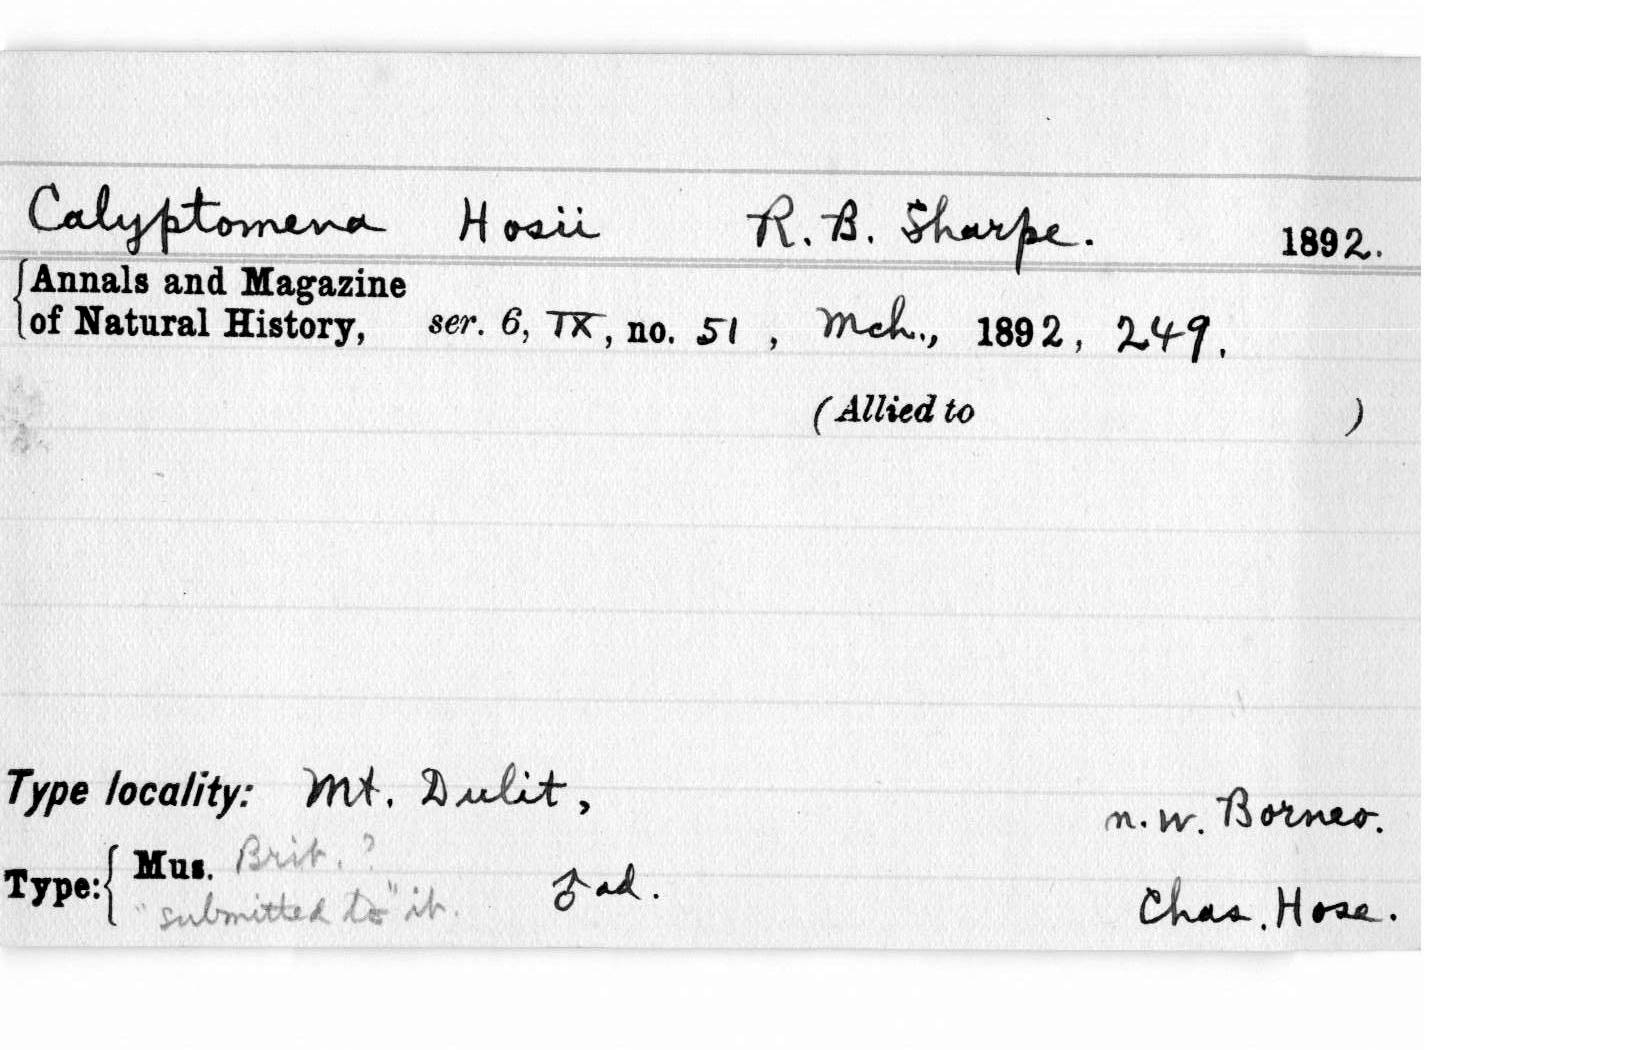 Calyptomena Hosii R. B. Sharpe. 1892.
Annals and Magazine
of Natural History, ser. 6, IX, no. 51, Mch., 1892, 249.
(Allied to )
Type locality: Mt. Dulit, n.w. Borneo.
Type: Mus. Brit. ? ♂ ad. Chas. Hose.
"submitted to" it.